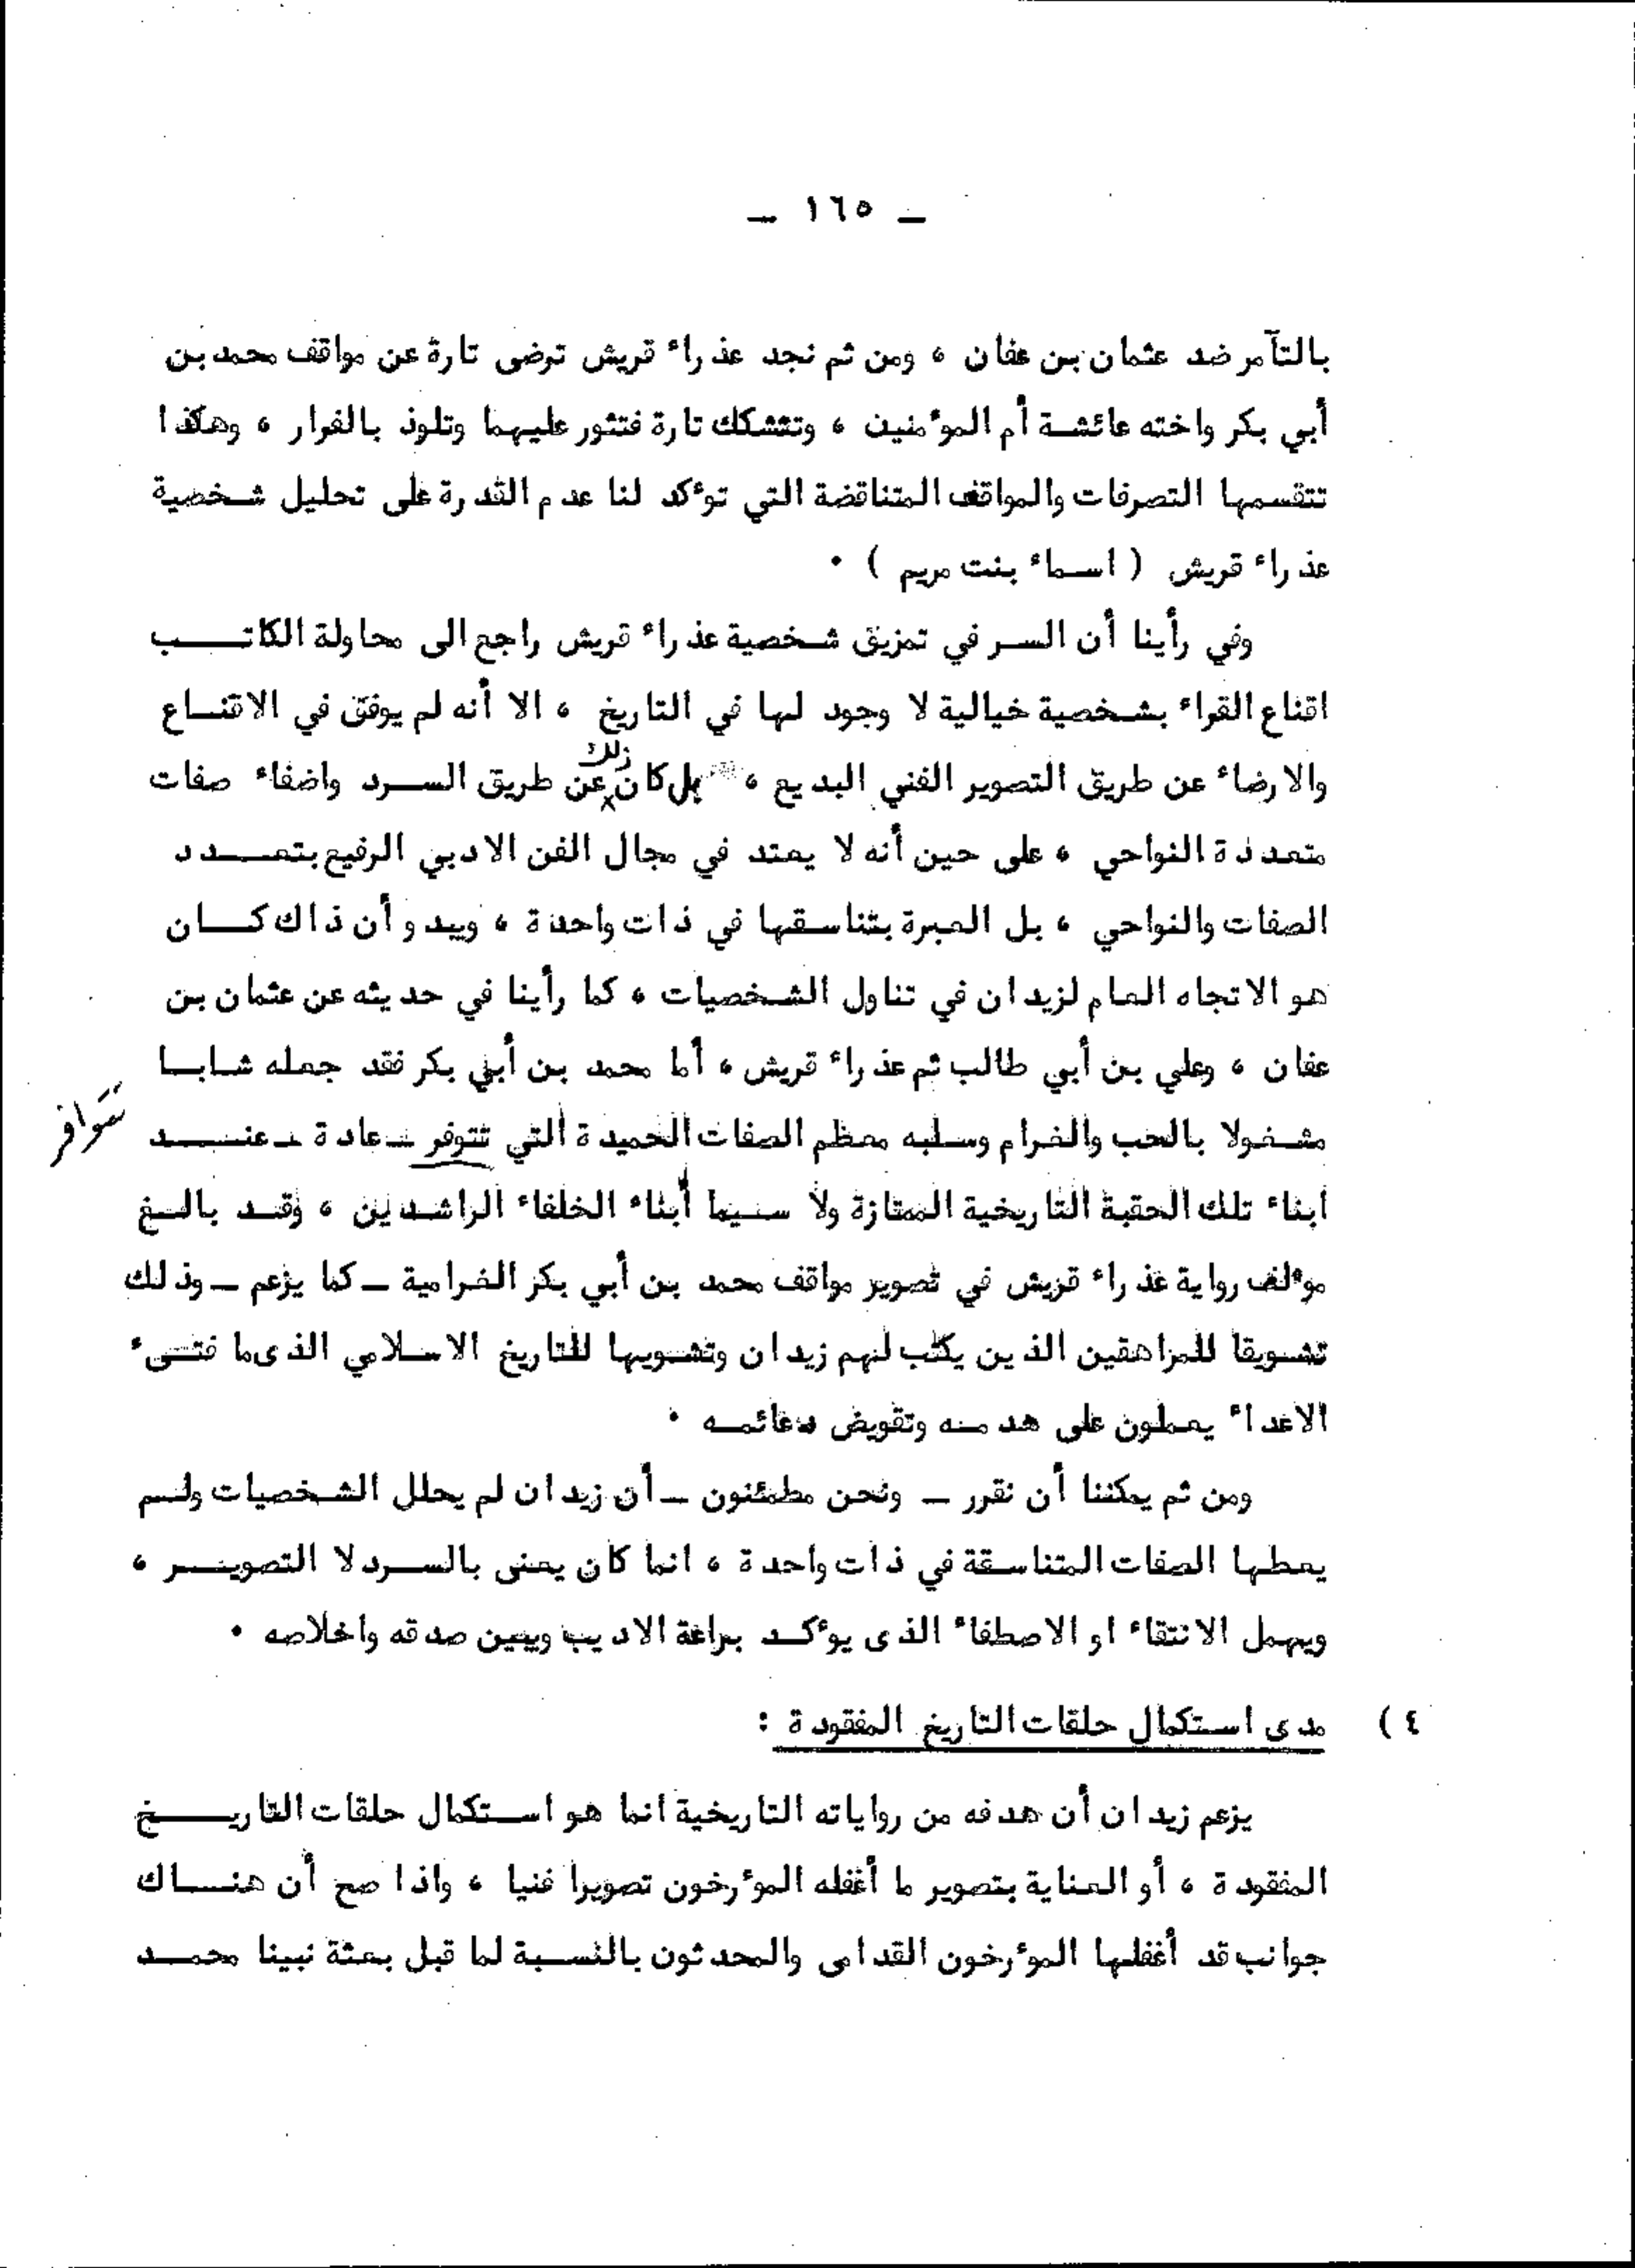 ـ ١٦٥ ـ
بالتآمر ضد عثمان بن عفان ، ومن ثم نجد عذراء قريش ترضى تارة عن مواقف محمد بن
أبي بكر واخته عائشة أم المؤمنين ، وتتشكك تارة فتثور عليهما وتلوذ بالفرار ، وهكذا
تتقسمها التصرفات والمواقف المتناقضة التي تؤكد لنا عدم القدرة على تحليل شخصية
عذراء قريش ( اسماء بنت مريم ) .
وفي رأينا أن السر في تمزيق شخصية عذراء قريش راجع الى محاولة الكاتب
اقناع القراء بشخصية خيالية لا وجود لها في التاريخ ، الا أنه لم يوفق في الاقناع
والارضاء عن طريق التصوير الفني البديع ، بل كان ذلك عن طريق السرد واضفاء صفات
متعددة النواحي ، على حين أنه لا يعتد في مجال الفن الادبي الرفيع بتعدد
الصفات والنواحي ، بل العبرة بتناسقها في ذات واحدة ، ويبدو أن ذاك كان
هو الاتجاه العام لزيدان في تناول الشخصيات ، كما رأينا في حديثه عن عثمان بن
عفان ، وعلي بن أبي طالب ثم عذراء قريش ، أما محمد بن أبي بكر فقد جعله شابا
مشغولا بالحب والغرام وسلبه معظم الصفات الحميدة التي تتوفر ـ عادة ـ عند
تتوافر
ابناء تلك الحقبة التاريخية الممتازة ولا سيما أبناء الخلفاء الراشدين ، وقد بالغ
مؤلف رواية عذراء قريش في تصوير مواقف محمد بن أبي بكر الغرامية ـ كما يزعم ـ وذلك
تشويقا للمراهقين الذين يكتب لهم زيدان وتشويها للتاريخ الاسلامي الذى ما فتىء
الاعداء يعملون على هدمه وتقويض دعائمه .
ومن ثم يمكننا أن نقرر ـ ونحن مطمئنون ـ أن زيدان لم يحلل الشخصيات ولم
يعطها الصفات المتناسقة في ذات واحدة ، انما كان يعنى بالسرد لا التصوير ،
ويهمل الانتقاء او الاصطفاء الذى يؤكد براعة الاديب ويبين صدقه واخلاصه .
٤ ) مدى استكمال حلقات التاريخ المفقودة :
يزعم زيدان أن هدفه من رواياته التاريخية انما هو استكمال حلقات التاريخ
المفقودة ، أو العناية بتصوير ما أغفله المؤرخون تصويرا فنيا ، واذا صح أن هناك
جوانب قد أغفلها المؤرخون القدامى والمحدثون بالنسبة لما قبل بعثة نبينا محمد